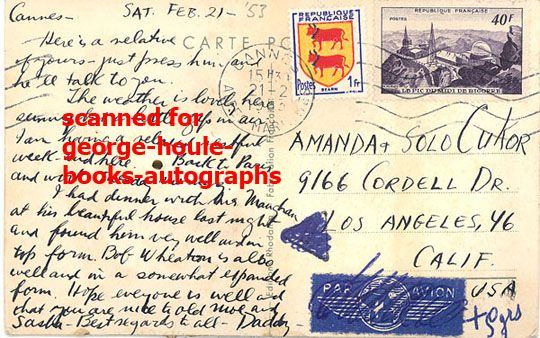 Cannes - Sat. Feb. 21 - '53
Here is a relative
of yours - just press him and
he'll talk to you.
The weather is lovely here
in
I am having a restful
week end here. Back to Paris
and
I had dinner with
at his beautiful house last night
and found him very well and in
top form. Bob Wheaton is also
well and in a somewhat expanded
form. Hope everyone is well and
that you are nice to old Moe and
Sasha - Best regards to all - Daddy -
scanned for
george-houle-
books-autographs
CARTE PO
CANNES
15H
21-2
Fabrication Française
REPUBLIQUE
FRANÇAISE
Postes 1fr
BEARN
REPUBLIQUE FRANÇAISE
POSTES
40F
LE PIC DU MIDI DE BIGORRE
AMANDA + SOLO CUTOR
9166 CORDELL DR.
LOS ANGELES, 46
CALIF.
USA
PAR AVION
+5grs